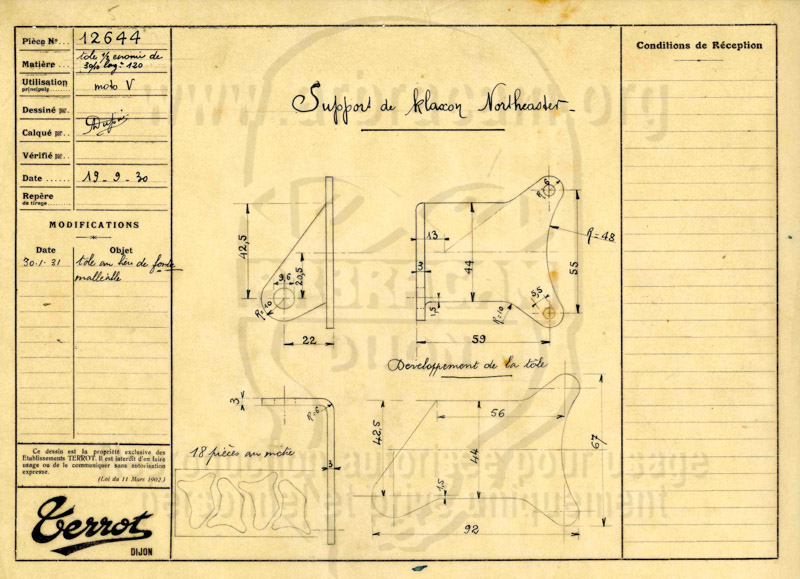 Pièce No... 12644
Matière... tole 3/10 long = 120
Utilisation
principale. moto V
Dessiné par.
Calqué par..
Vérifié par..
Date ...... 19-9-30
Repère
de tirage
MODIFICATIONS
Date Objet
30.1.31 tôle au lieu de fonte
malléable
Ce dessin est la propriété exclusive des
Etablissements TERROT. Il est interdit d'en faire
usage ou de le communiquer sans autorisation
expresse.
(Loi du 11 Mars 1902.)
Terrot
DIJON
Support de klaxon Northeaster
42,5
9,6
20,5
R=10
22
13
3
44
1,5
R=10
59
R=6
R=48
55
5,5
3
R=6
3
18 pièces au mètre
Développement de la tôle
42,5
56
44
1,5
67
92
Conditions de Réception